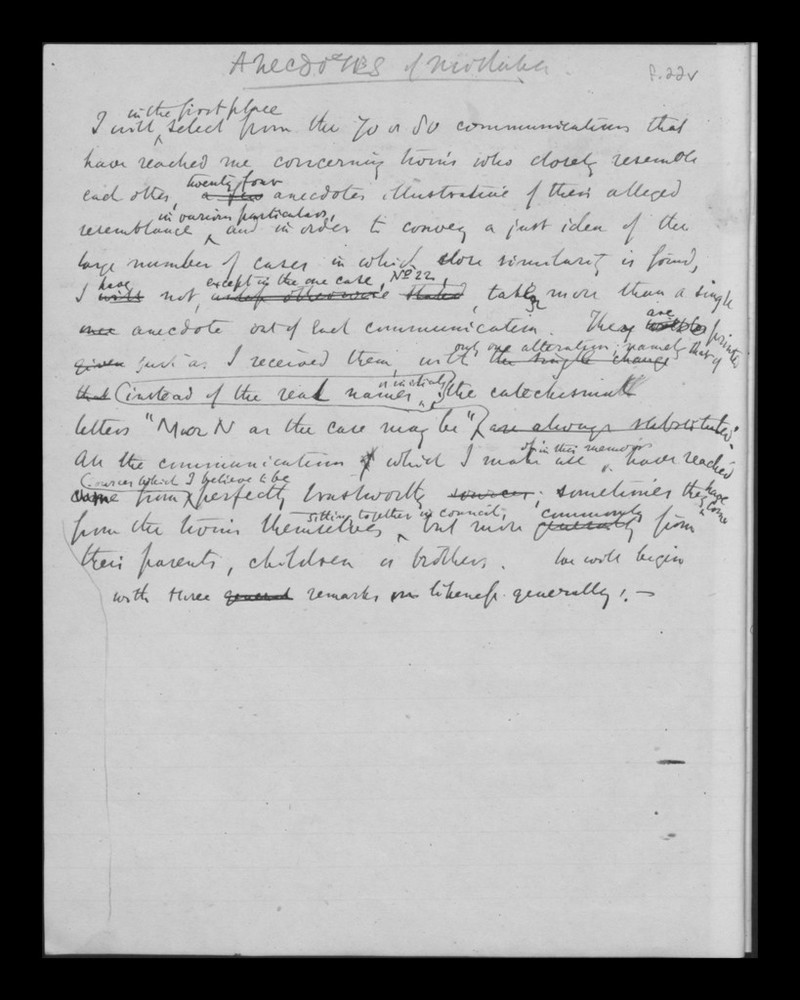 Anecdotes of mistakes
P. 22v
in the first place
I will select from the 70 or 80 communications that
have reached me concerning twins who closely resemble
twenty four
each other, a few anecdotes illustrative of their alleged
in various particulars,
resemblance and in order to convey a just idea of the
large number of cases in which close similarity is found,
have except in the one case, No 22,
I will not, unless otherwise stated, taken more than a single
one anecdote out of each communication. They are printed
only one alteration; namely that of
given just as I received them, with the single change
or initials
that (instead of the real names, the catechismal
letters "M or N as the case may be" are always substituted.
of in this memoir
All the communications of which I make use have reached
(sources which I believe to be
came from perfectly trustworthy sources; sometimes they have come
sitting together in council, commonly
from the twins themselves, but more generally from
their parents, children or brothers. We will begin
with three general remarks on likeness generally:—